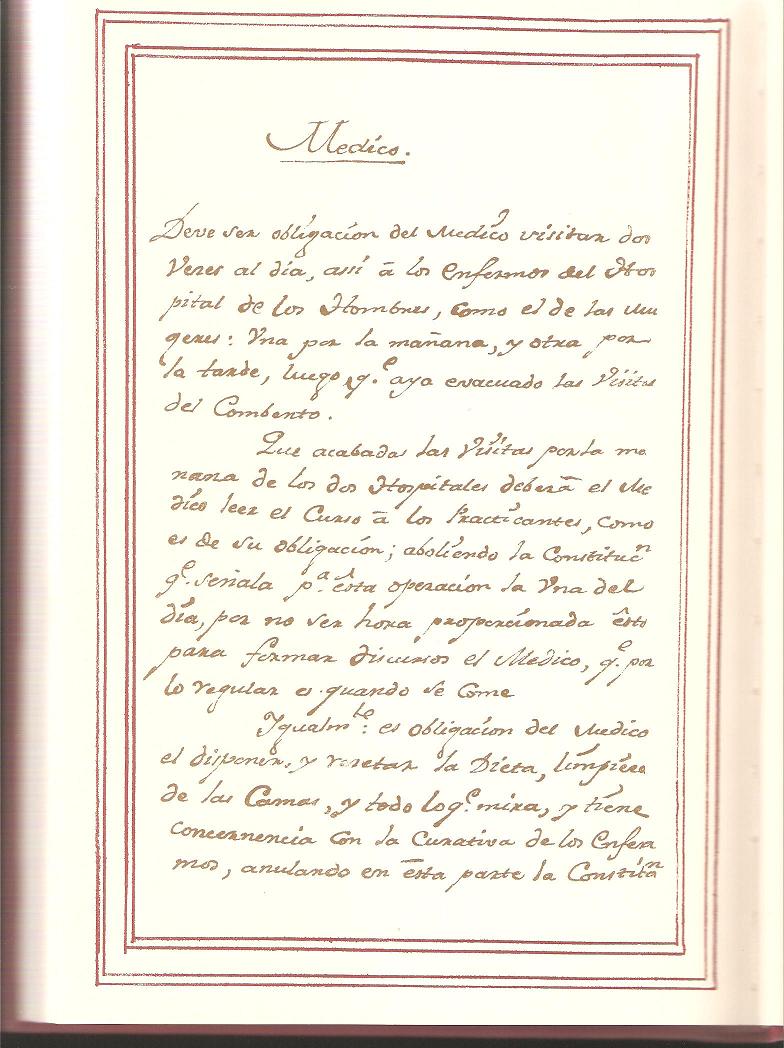 Medico.
Deve ser obligacion del Medico visitar dos
Veses al dia, assi â los Enfermos del Hos
pital de los Hombres, como el de las Mu
geres: Vna por la mañana, y otra por
la tarde, luego q.e aya evacuado las Visitas
del Combento.
Que acabadas las Visitas por la ma
nana de los dos Hospitales deberâ el Me
dico leer el Curso â los Practicantes, como
es de su obligacion; aboliendo la Constituc.n
q.e señala p.a êsta operacion la Vna del
dia, por no ser hora proporcionada êsta
para formar discursos el Medico, q.e por
lo regular es quando se Come
Igualm.te: es obligacion del Medico
el disponer, y resetar la Dieta, limpiesa
de las Camas, y todo lo q.e mira, y tiene
concernencia con la Curativa de los Enfer
mos, anulando en êsta parte la Constit.n